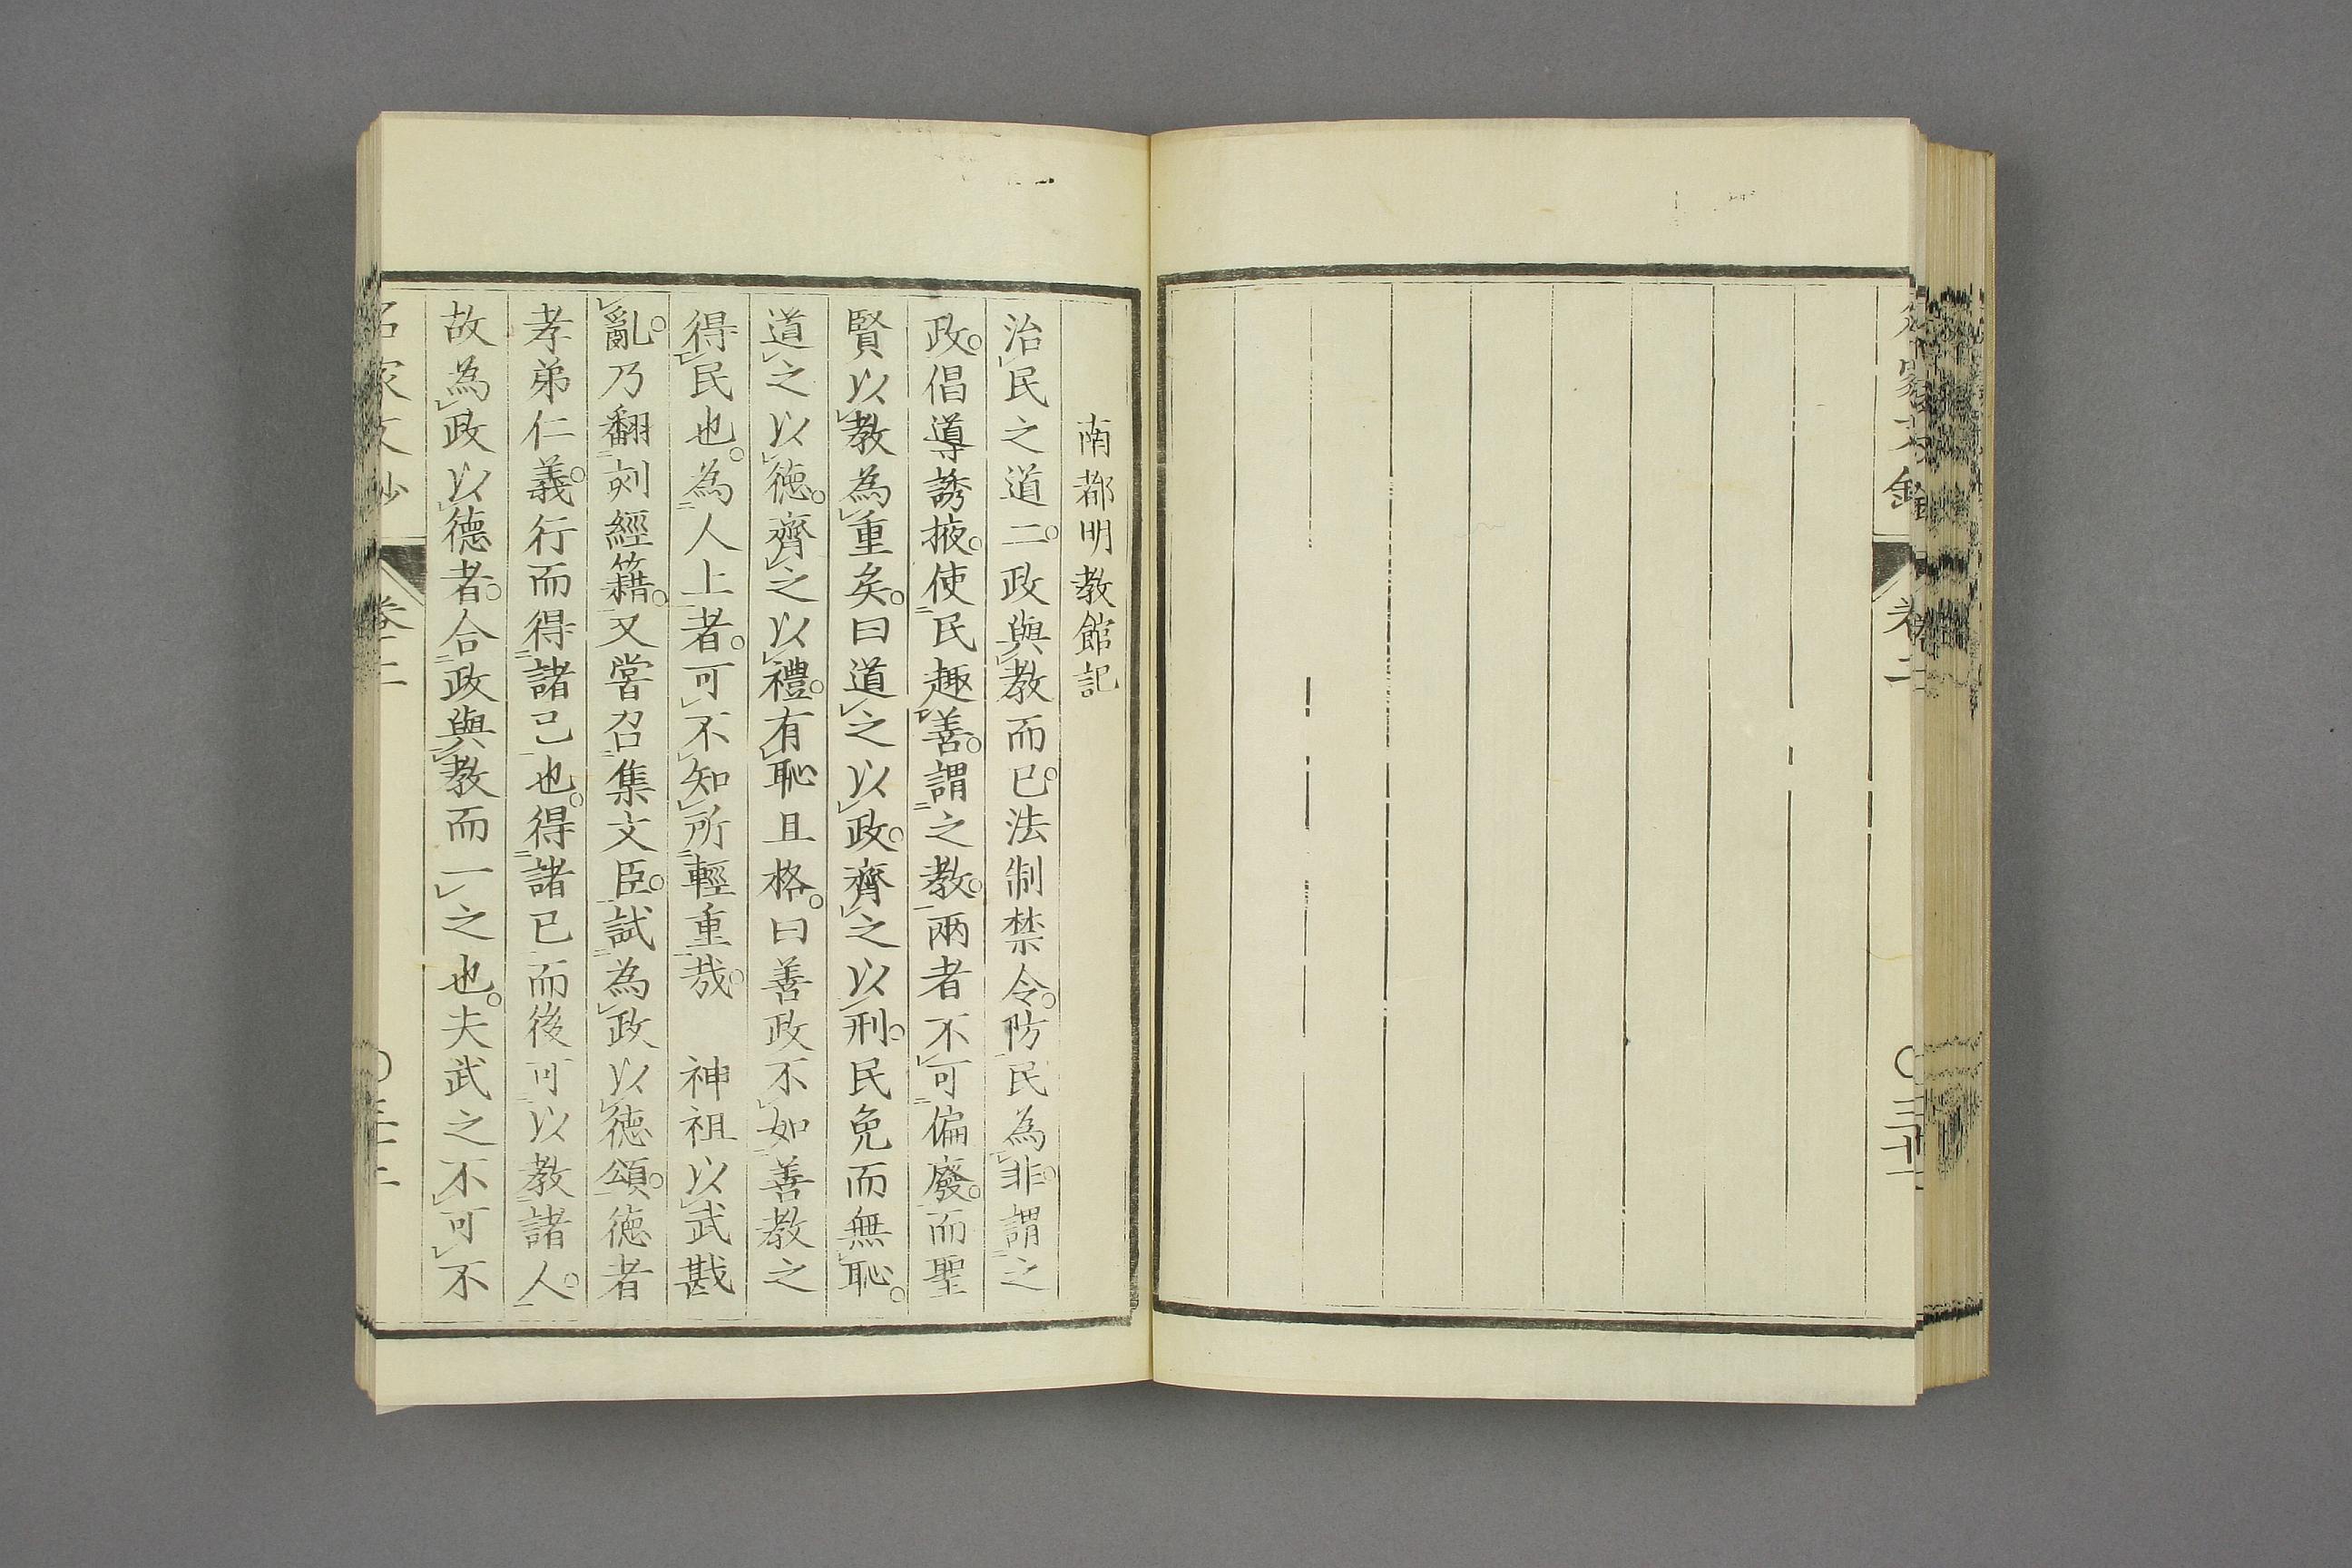 卷二
南都明教館記
治民之道二。政與教而已。法制禁令。防民為非。謂之
政。倡導誘掖。使民趣善。謂之教。兩者不可偏廢。而聖
賢以教為重矣。曰道之以政。齊之以刑。民免而無恥。
道之以德。齊之以禮。有恥且格。曰善政不如善教之
得民也。為人上者。可不知所輕重哉。　神祖以武戡
亂。乃翻刻經籍。又嘗召集文臣。試為政以德頌。德者
孝弟仁義。行而得諸己也。得諸已而後可以教諸人。
故為政以德者。合政與教而一之也。夫武之不可不
名家文抄
卷二